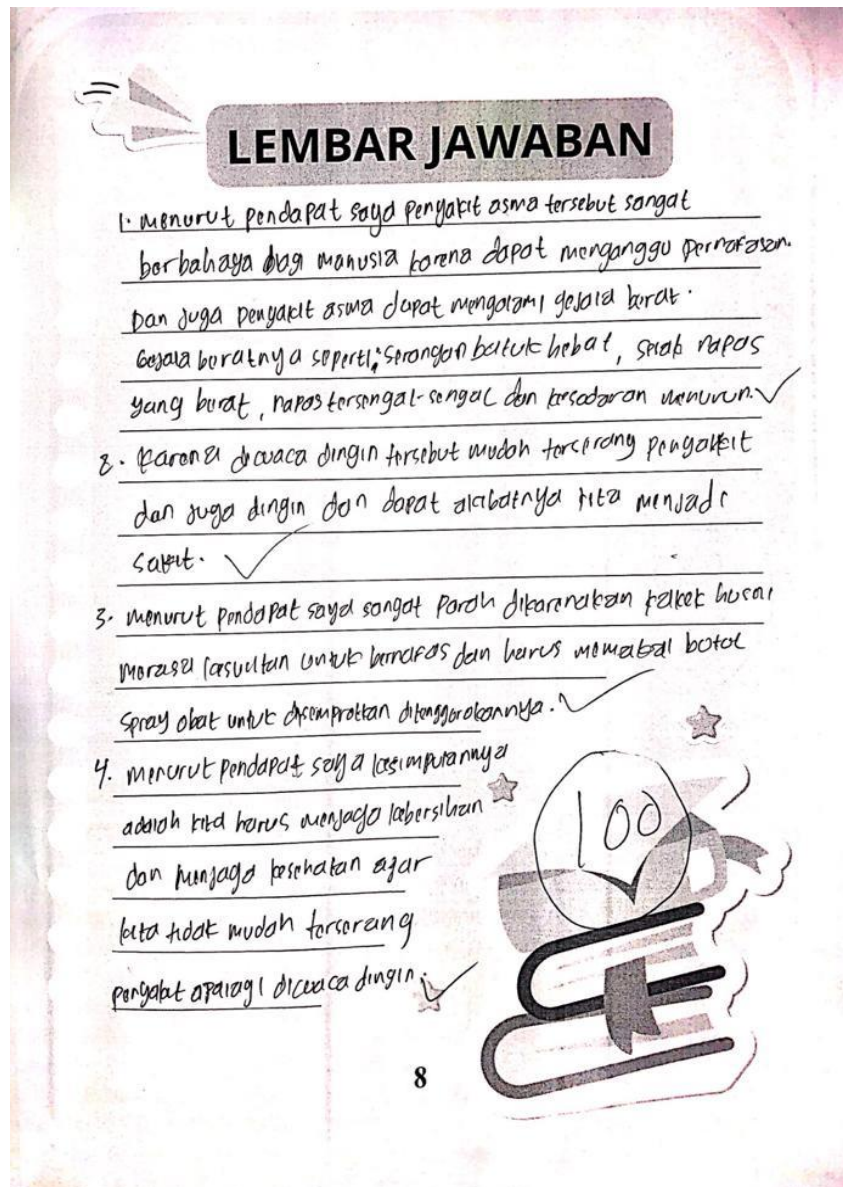 LEMBAR JAWABAN
1. menurut pendapat saya penyakit asma tersebut sangat
berbahaya bagi manusia karena dapat menganggu pernafasan.
Dan juga penyakit asma dapat mengalami gejala berat.
Gejala beratnya seperti; serangan batuk hebat, sesak napas
yang berat, napas tersengal-sengal dan kesadaran menurun.
2. Karena dicuaca dingin tersebut mudah terserang penyakit
dan juga dingin dan dapat akibatnya kita menjadi
sakit.
3. menurut pendapat saya sangat Parah dikarenakan kakek husai
merasa kesulitan untuk bernafas dan harus memakai botol
spray obat untuk disemprotkan ditenggorokannya.
4. menurut pendapat saya kesimpulannya
adalah kita harus menjaga kebersihan
dan menjaga kesehatan agar
kita tidak mudah terserang
penyakit apalagi dicuaca dingin.
100
8